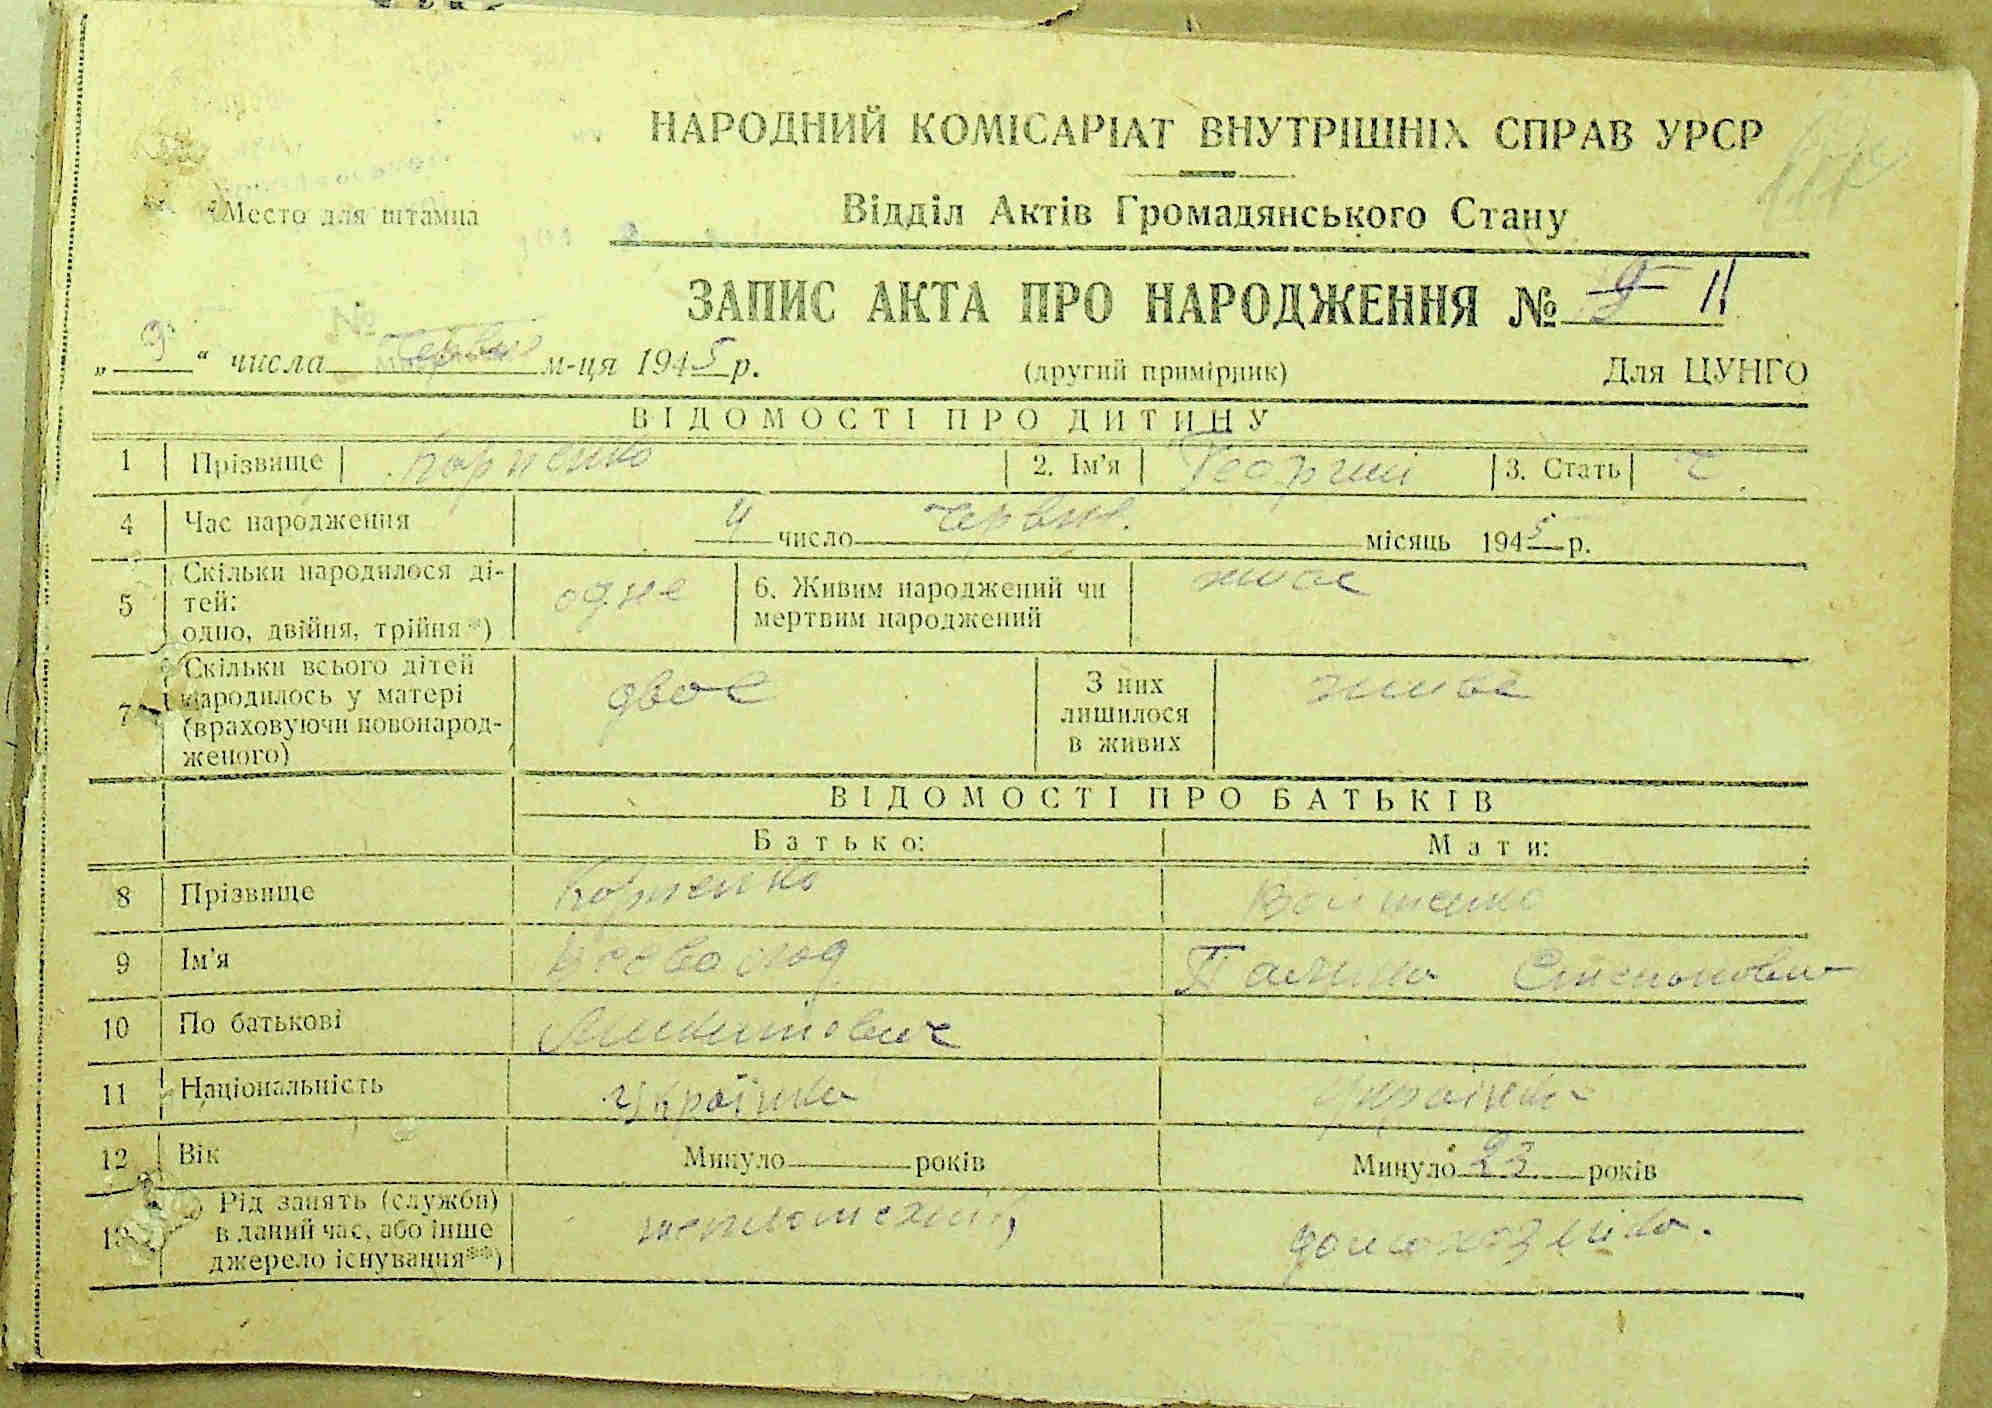 НАРОДНИЙ КОМІСАРІАТ ВНУТРІШНІХ СПРАВ УРСР
Место для штампа
Відділ Актів Громадянського Стану
ЗАПИС АКТА ПРО НАРОДЖЕННЯ № 9 11
„ 9 “ числа м-ця 1945 р. (другий примірник) Для ЦУНГО
ВІДОМОСТІ ПРО ДИТИНУ
1 Прізвище 2. Ім'я Георгій 3. Стать ч.
4 Час народження 4 число червня місяць 1945 р.
5 Скільки народилося дітей: одно, двійня, трійня*) одне 6. Живим народжений чи мертвим народжений
7 Скільки всього дітей народилось у матері (враховуючи новонародженого) двоє З них лишилося в живих живе
ВІДОМОСТІ ПРО БАТЬКІВ
Батько: Мати:
8 Прізвище Войтенко
9 Ім'я Всеволод Галина Степановна
10 По батькові Микитович
11 Національність Українка Українка
12 Вік Минуло років Минуло 23 років
13 Рід занять (служби) в даний час, або інше джерело існування**) домохозяйка.